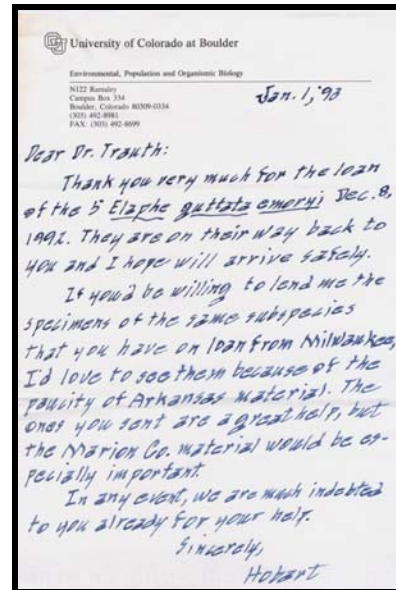 University of Colorado at Boulder
Environmental, Population and Organismic Biology
N122 Ramaley
Campus Box 334
Boulder, Colorado 80309-0334
(303) 492-8981
FAX: (303) 492-8699
Jan. 1, '93
Dear Dr. Trauth:
Thank you very much for the loan
of the 5 Elaphe guttata emoryi Dec. 8,
1992. They are on their way back to
you and I hope will arrive safely.
If you'd be willing to lend me the
specimens of the same subspecies
that you have on loan from Milwaukee,
I'd love to see them because of the
paucity of Arkansas material. The
ones you sent are a great help, but
the Marion Co. material would be es-
pecially important.
In any event, we are much indebted
to you already for your help.
Sincerely,
Hobart